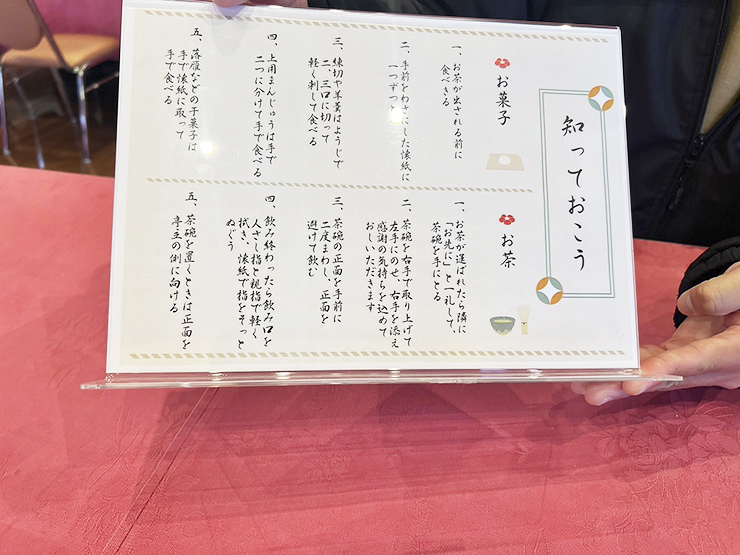 知っておこう
お菓子
一、お茶が出される前に
食べきる
二、手前をわさにした懐紙に
一つずつとる
三、練切や羊羹はようじで
二、三口に切って
軽く刺して食べる
四、上用まんじゅうは手で
二つに分けて手で食べる
五、落雁などの干菓子は
手で懐紙に取って
手で食べる
お茶
一、お茶が運ばれたら隣に
「お先に」と一礼して、
茶碗を手にとる
二、茶碗を右手で取り上げて
左手にのせ、右手を添え
感謝の気持ちを込めて
おしいただきます
三、茶碗の正面を手前に
二度まわし、正面を
避けて飲む
四、飲み終わったら飲み口を
人さし指と親指で軽く
拭き、懐紙で指をそっと
ぬぐう
五、茶碗を置くときは正面を
亭主の側に向ける